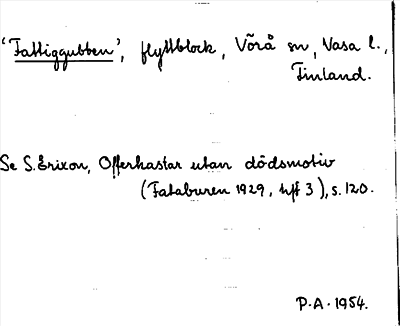 'Fattiggubben', flyttblock, Vörå sn, Vasa l.,
Finland.
Se S. Erixon, Offerkastar utan dödsmotiv
(Fataburen 1929, hft 3), s. 120.
P.A. 1954.